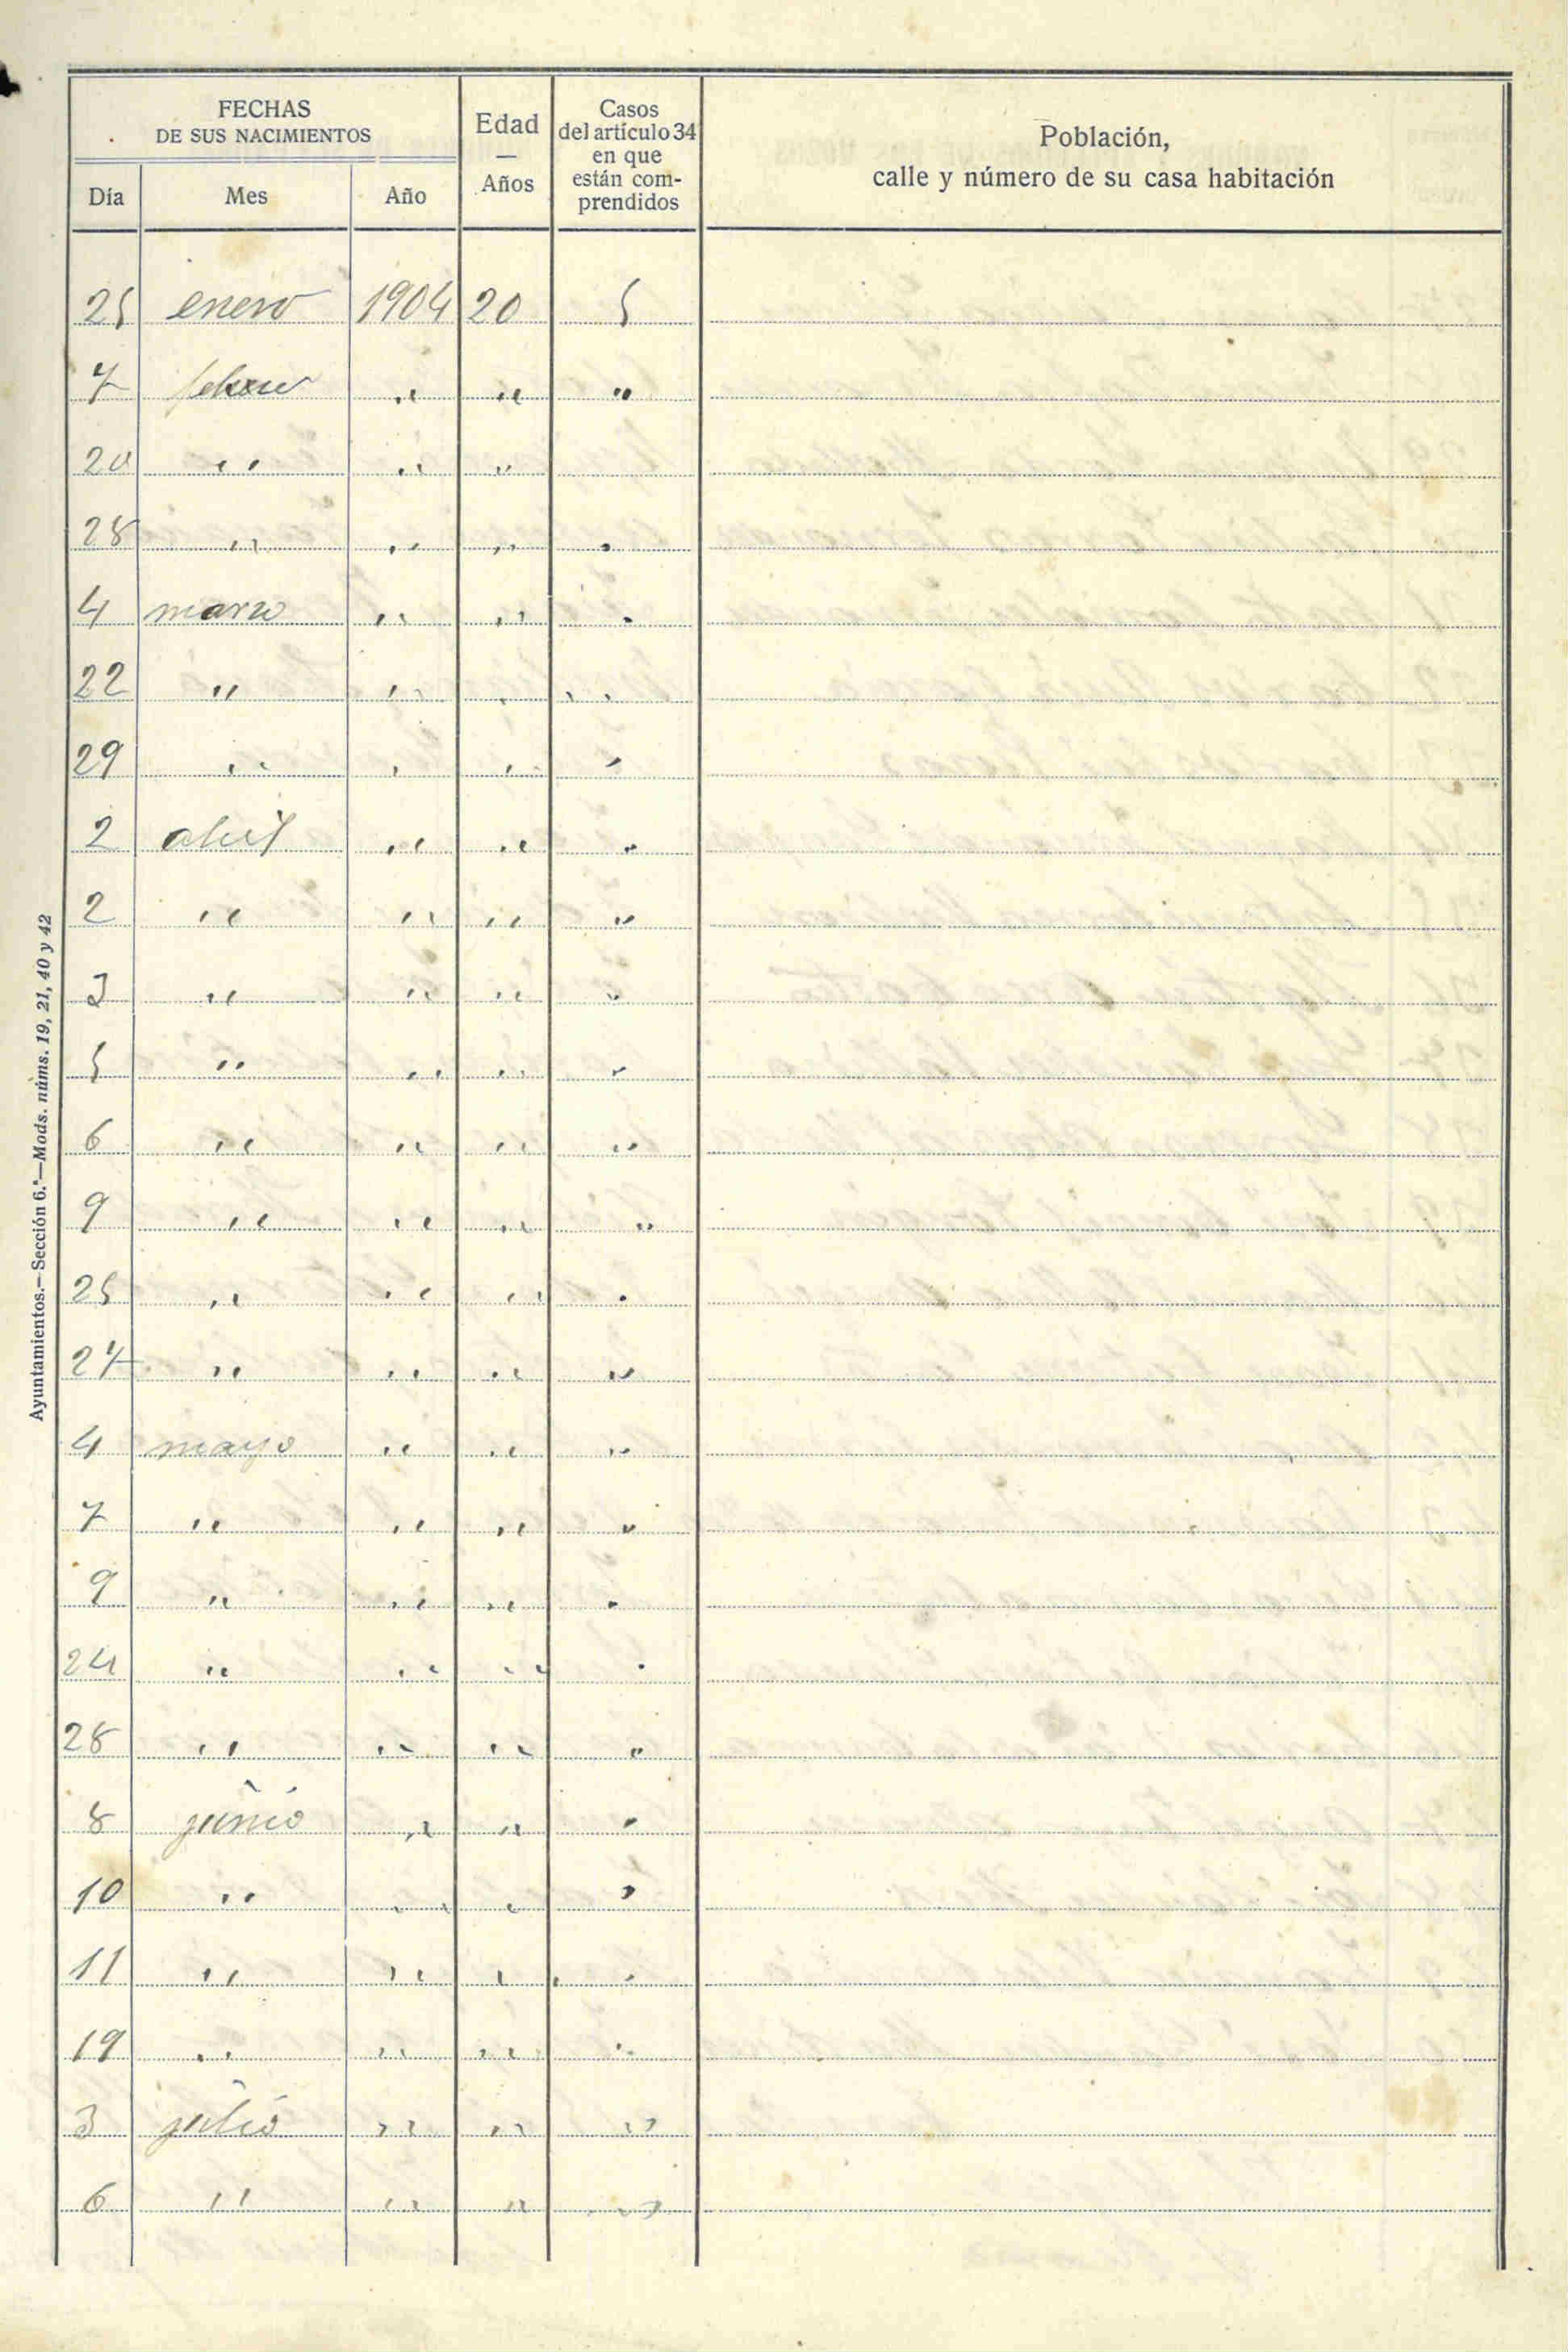 FECHAS
DE SUS NACIMIENTOS
Día Mes Año
Edad
—
Años
Casos
del artículo 34
en que
están com-
prendidos
Población,
calle y número de su casa habitación
25 enero 1904 20 5
7 febrero " " "
20 " " "
28 " " " "
4 marzo " " "
22 " " " "
29 " " " "
2 abril " " "
2 " " " "
3 " " " "
5 " " " "
6 " " " "
9 " " " "
25 " " " "
27 " " " "
4 mayo " " "
7 " " " "
9 " " " "
24 " " " "
28 " " " "
8 junio " " "
10 " " " "
11 " " " "
19 " " " "
3 julio " " "
6 " " " "
Ayuntamientos.—Sección 6.ª—Mods. núms. 19, 21, 40 y 42